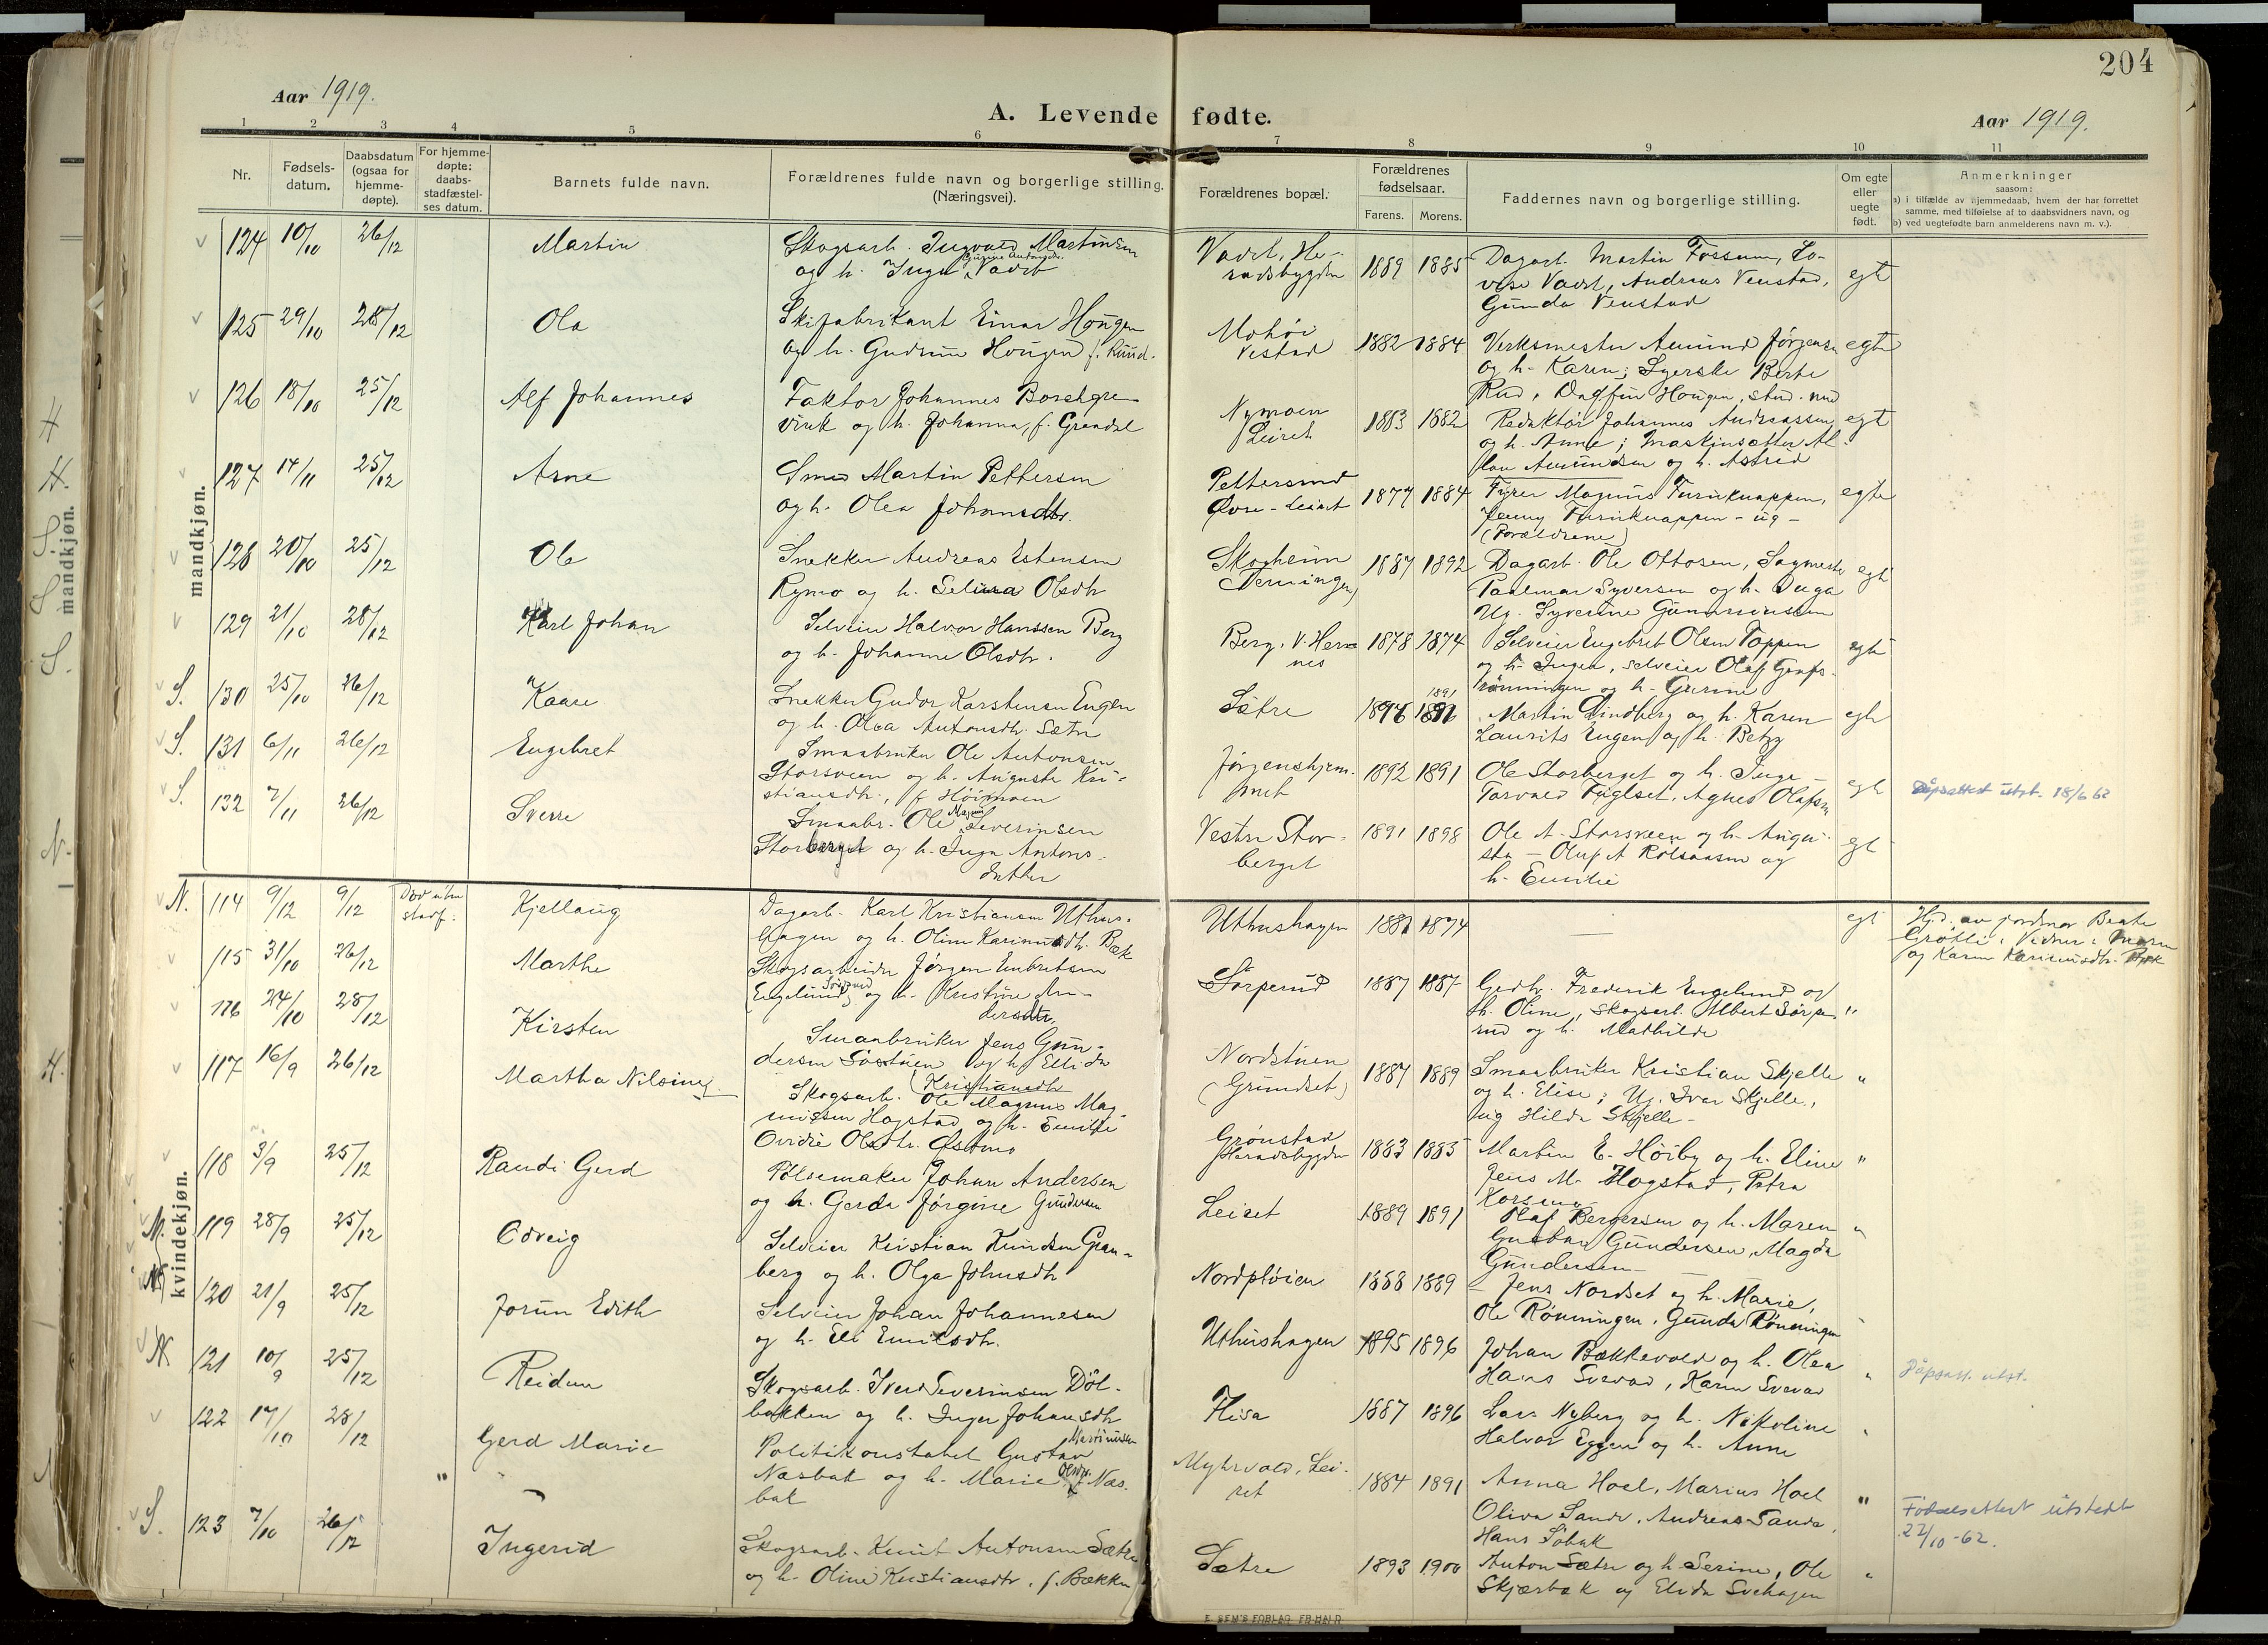 204
Aar 1919.
A. Levende fødte.
Aar 1919.
1 2 3 4 5 6 7 8 9 10 11
Nr.
Fødsels-
datum.
Daabsdatum
(ogsaa for
hjemme-
døpte).
For hjemme-
døpte:
daabs-
stadfæstel-
ses datum.
Barnets fulde navn.
Forældrenes fulde navn og borgerlige stilling.
(Næringsvei).
Forældrenes bopæl.
Forældrenes
fødselsaar.
Farens. Morens.
Faddernes navn og borgerlige stilling.
Om egte
eller
uegte
født.
Anmerkninger
saasom:
a) i tilfælde av hjemmedaab, hvem der har forrettet
samme, med tilføielse af to daabsvidners navn, og
b) ved uegtefødte barn anmelderens navn m. v.).
mandkjøn.
124 10/10 26/12 Martin
Skogsarb. Ingvald Martinsen
og h. Inga Vadet
Vadet, He-
radsbygden
1889 1885
Dagarb. Martin Fossum, Lo-
vise Vadet, Andreas Venstad,
Gunda Venstad
egt
125 29/10 28/12 Ola
Skifabrikant Einar Hougen
og h. Gudrun Hougen f. Ruud.
Mohöi
Vestad
1882 1884
Verksmester Amund Jørgensen
og h. Karen; Syerske Berte
Rud, Dagfin Hougen, stud. med
egte
126 18/10 25/12 Alf Johannes
Faktor Johannes Borchgre-
vink og h. Johanna, f. Grendal
Nymoen
Leiret
1883 1882
Redaktør Johannes Andreassen
og h. Anne; Maskinsætter Al-
Amundsen og h. Astrid
egt
127 14/11 25/12 Arne
Smed Martin Pettersen
og h. Olea Johansdtr.
Pettersmed
Øvre-Leiret
1877 1884
Fyrer Magnus Furuknappen,
Jenny Furuknappen - ug -
(Forældrene)
egte
128 20/10 25/12 Ole
Snekker Andreas Estensen
Rymo og h. Selina Olsdtr
Skogheim
(Terningen)
1887 1892
Dagarb. Ole Ottosen, Sagmester
Thalmar Syversen og h. Inga
Ug. Syverine Guneriussen
egt
129 21/10 28/12 Karl Johan
Selveier Halvor Hanssen Berg
og h. Johanne Olsdtr.
Berg, V. Hern-
nes
1878 1874
Selveier Engebret Olsen Toppen
og h. Inger, selveier Olaf Grafs-
rønningen og h. Gurine
egt
S. 130 25/10 26/12 Kaare
Snekker Gudor Karstensen Engen
og h. Olea Antonsdtr. Sætre
Sætre
1891
1896
Martin Lindberg og h. Karen
Laurits Engen og h. Betzy
egt
S. 131 6/11 26/12 Engebret
Smaabruker Ole Antonsen
Storsveen og h. Auguste Kri-
stiansdtr., f. Höimoen
Jørgenshjem-
met
1892 1891
Ole Storberget og h. Inga -
Torvald Fuglset, Agnes Olafsen
egt
Dåpsattest utst. 18/6 62
S. 132 7/11 26/12 Sverre
Smaabr. Ole Severinsen
Storberget og h. Inga Antons-
datter
Vestre Stor-
berget
1891 1898
Ole A. Storsveen og h. Augu-
sta - Oluf A Rolsaasen og
h. Emilie
egt
kvindekjøn.
N. 114 9/12 9/12 Død uten
stadf.
Kjellaug
Dagarb. Karl Kristiansen Uthus-
hagen og h. Oline Karinusdtr. Bæk
Uthushagen
1881 1874
—
egt
Hjd. av jordmor Beate
Grøtli; Vidner: Maren
og Karen Karinusdtr. Bæk
115 31/10 26/12 Marthe
Skogsarbeider Jørgen Embretsen
Engelund og h. Kristine An-
dersdtr.
Sørperud
1887 1887
Gedbr. Frederik Engelund og
h. Oline, skogsarb. Albert Sørpe-
rud og h. Mathilde
"
116 24/10 28/12 Kirsten
Smaabruker Jens Gun-
dersen Søstuen og h. Ellida
(Kristiansdtr
Nordstuen
(Grundset)
1887 1889
Smaabruker Kristian Skjelle
og h. Elise; Ug. Ivar Skjelle,
ug Hilda Skjelle -
"
117 16/9 26/12 Martha Nilsine
Skogsarb. Ole Magnus Mag-
nussen Hogstad og h. Emilie
Ovidie Olsdtr. Østmo
Grønstad
Heradsbygden
1883 1885
Martin E. Höiby og h. Eline
Jens M. Hogstad, Petra
Korsmo
"
118 3/9 25/12 Randi Gerd
Pølsemaker Johan Andersen
og h. Gerda Jørgine Gundersen
Leiret
1889 1891
Olaf Bergersen og h. Maren
Gustav Gundersen, Magda
Gundersen -
"
119 28/9 25/12 Odveig
Selveier Kristian Knudsen Gran-
berg og h. Olga Johnsdtr
Nordpløien
1888 1889
Jens Nordset og h. Marie,
Ole Rønningen, Gunda Rønningen
120 21/9 25/12 Jorun Edith
Selveier Johan Johannesen
og h. Eli Emilsdtr.
Uthushagen
1895 1896
Johan Bækkevold og h. Olea
Hans Svevad, Karen Svevad
"
Dåpsatt. utst.
N 121 10/9 25/12 Reidun
Skogsarb. Iver Severinsen Döl-
bakken og h. Inger Johansdtr
Flisa
1887 1896
Lars Nyberg og h. Nikoline
Halvor Eggen og h. Anne
122 17/10 28/12 Gerd Marie
Politikonstabel Gustav
Næsbak og h. Marie Olsdtr. Næs-
bak
Myhrvold, Lei-
ret
1884 1891
Anna Hoel, Marius Hoel
Oliva Sande, Andreas Sande,
Hans Söbak
"
Fødselsattest utstedt
22/10-62.
S. 123 7/10 26/12 Ingerid
Skogsarb. Knut Antonsen Sætre
og h. Oline Kristiansdtr., f. Bækken
Sætre
1893 1900
Anton Sætre og h. Serine, Ole
Skjærbæk og Elida Svehagen
"
E. SEM'S FORLAG FR.HALD